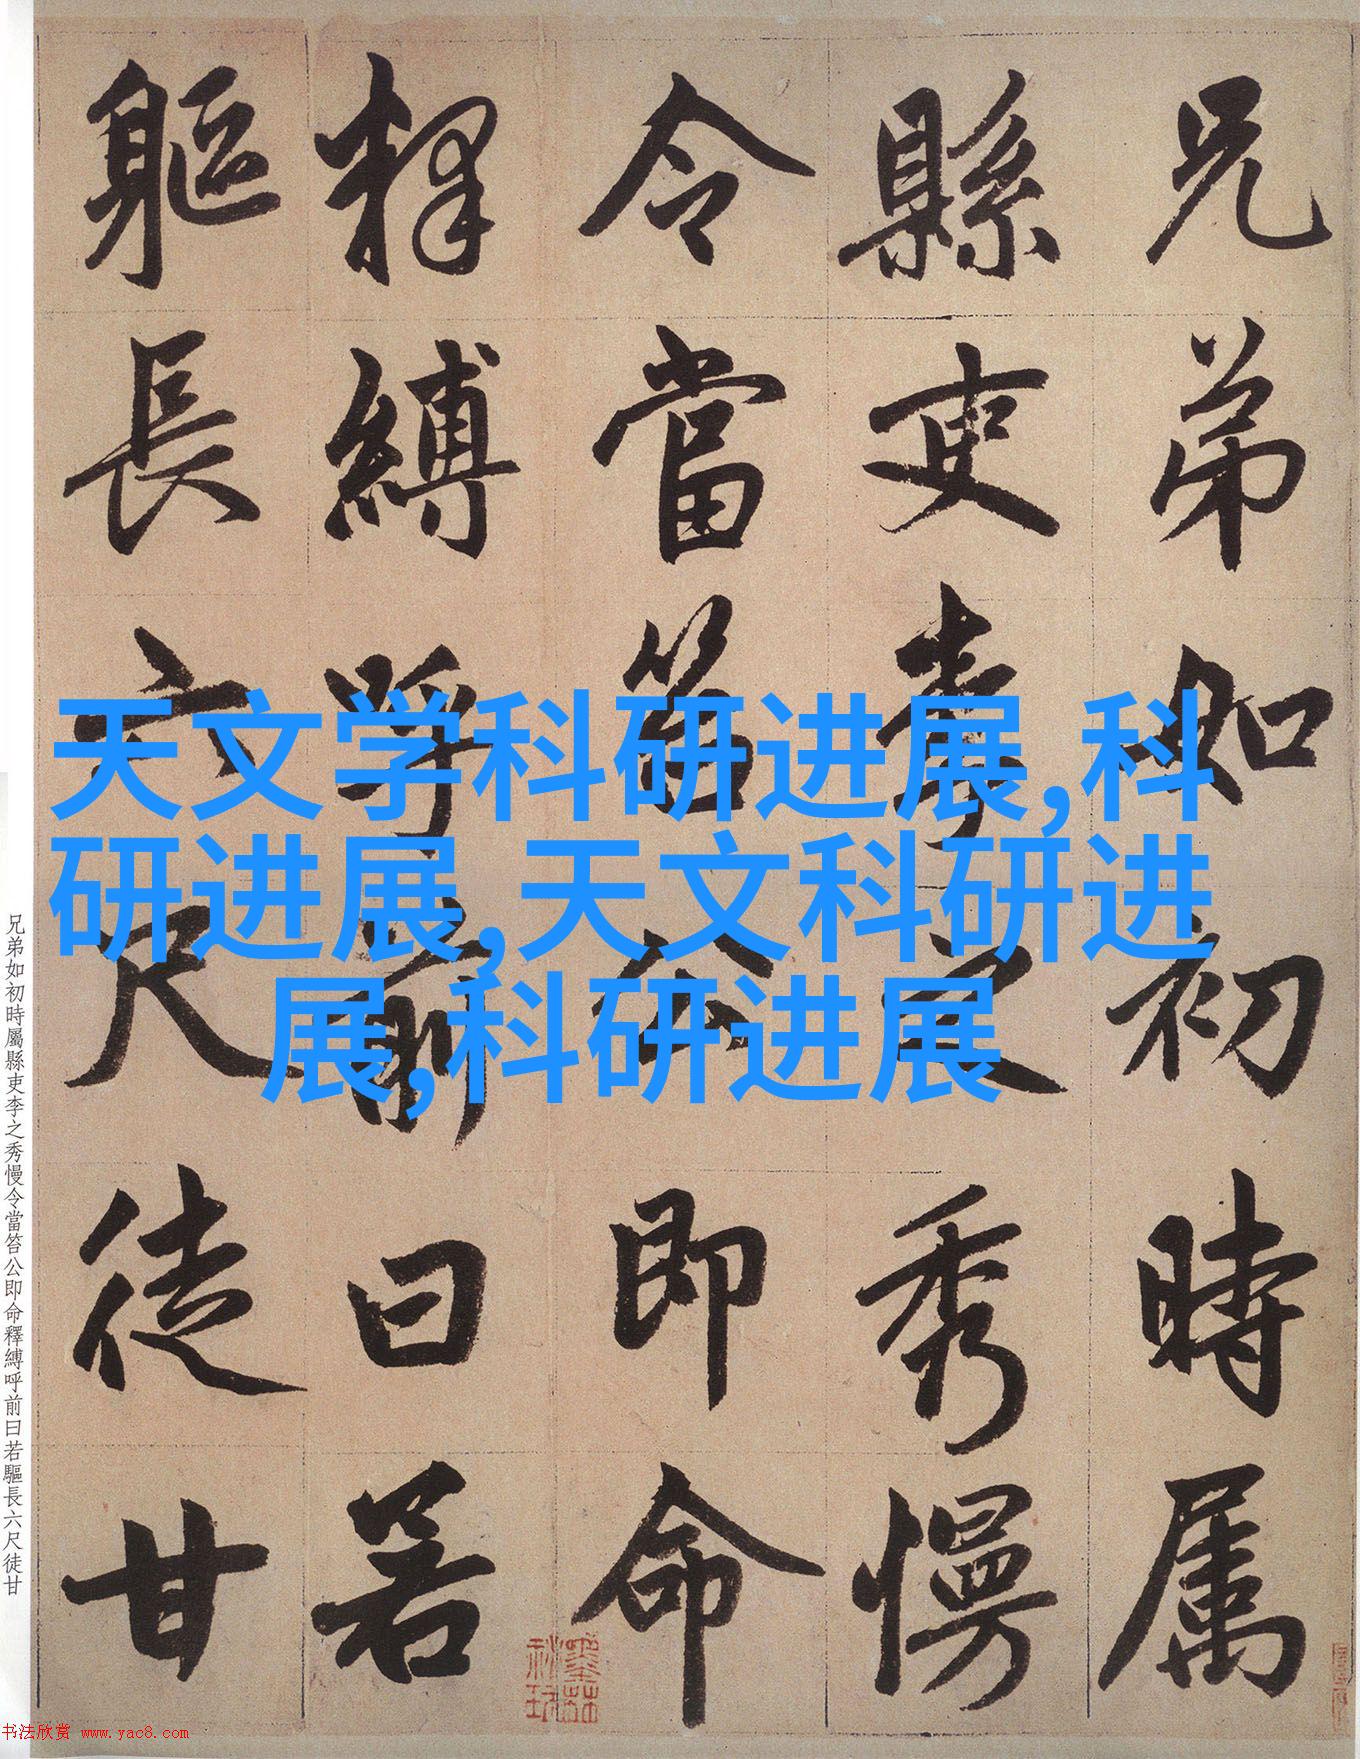 兄弟如初時属
縣吏李之秀慢
令當笞公即命
释縛呼前曰若
軀長六尺徒甘
天文学科研进展,科
研进展,天文科研进
展,科研进展
兄弟如初時屬縣吏李之秀慢令當笞公即命釋縛呼前曰若驅長六尺徒甘
书法欣赏 www.yac8.com